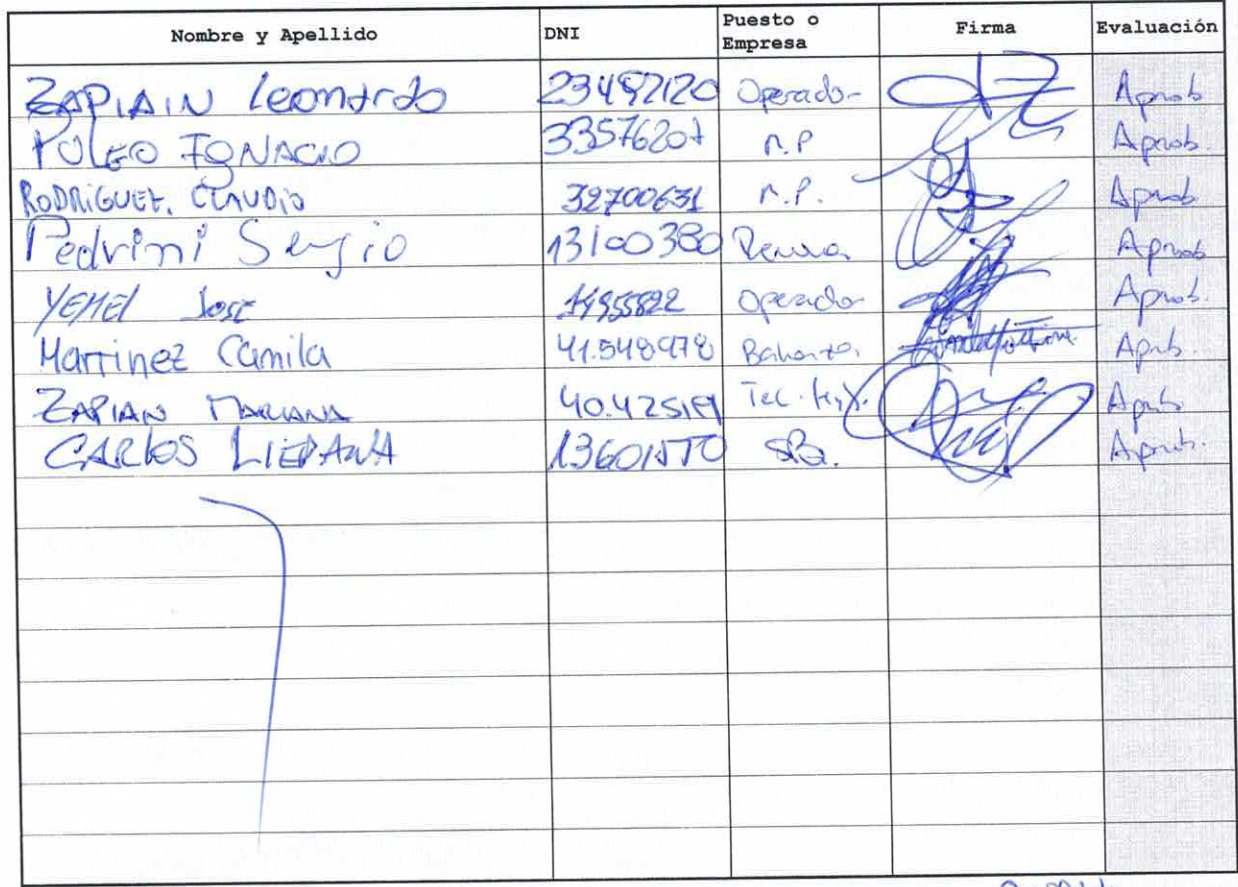 Nombre y Apellido DNI Puesto o Empresa Firma Evaluación
ZAPIAIN Leonardo 23492120 Operador Aprob
PULEO IGNACIO 33576207 M.P Aprob.
RODRIGUEZ, CLAUDIO 32700631 M.P. Aprob
Pedrini Sergio 13100380 Aprob
YEMEL JOSE 14955822 Operador Aprob.
Martinez Camila 41.548978 Balanza Aprob.
ZAPIAIN MARIANA Tec. HyS. Aprob
CARLOS Aprob.